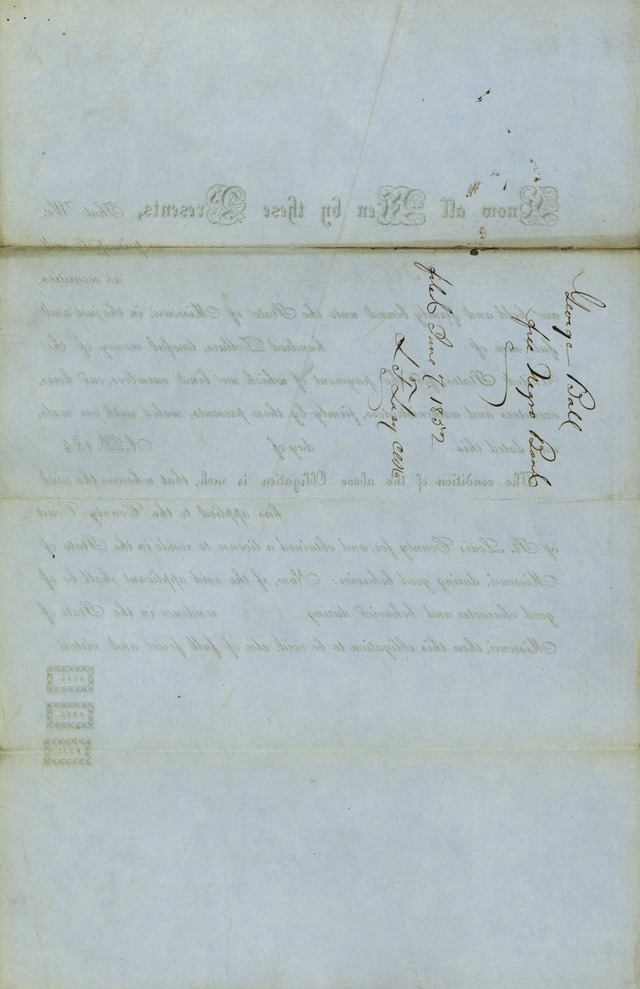 George Ball
free Negro Bond
filed June 7, 1852
Know all Men by these Presents, That We
principal, and
as securities,
are held and firmly bound unto the State of Missouri, in the just and
full sum of hundred Dollars, lawful money of the
United States, for the payment of which we bind ourselves, our heirs,
executors and administrators, firmly by these presents, sealed with our seals,
dated this day of A.D. 184
The condition of the above Obligation is such, that whereas the said
has applied to the County Court
of St. Louis County for, and obtained a license to reside in the State of
Missouri, during good behavior: Now, if the said applicant shall be of
good character and behavior during residence in the State of
Missouri, then this obligation to be void, else of full force and virtue
SEAL
SEAL
SEAL